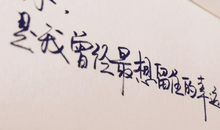 是我曾经最想留住的幸运